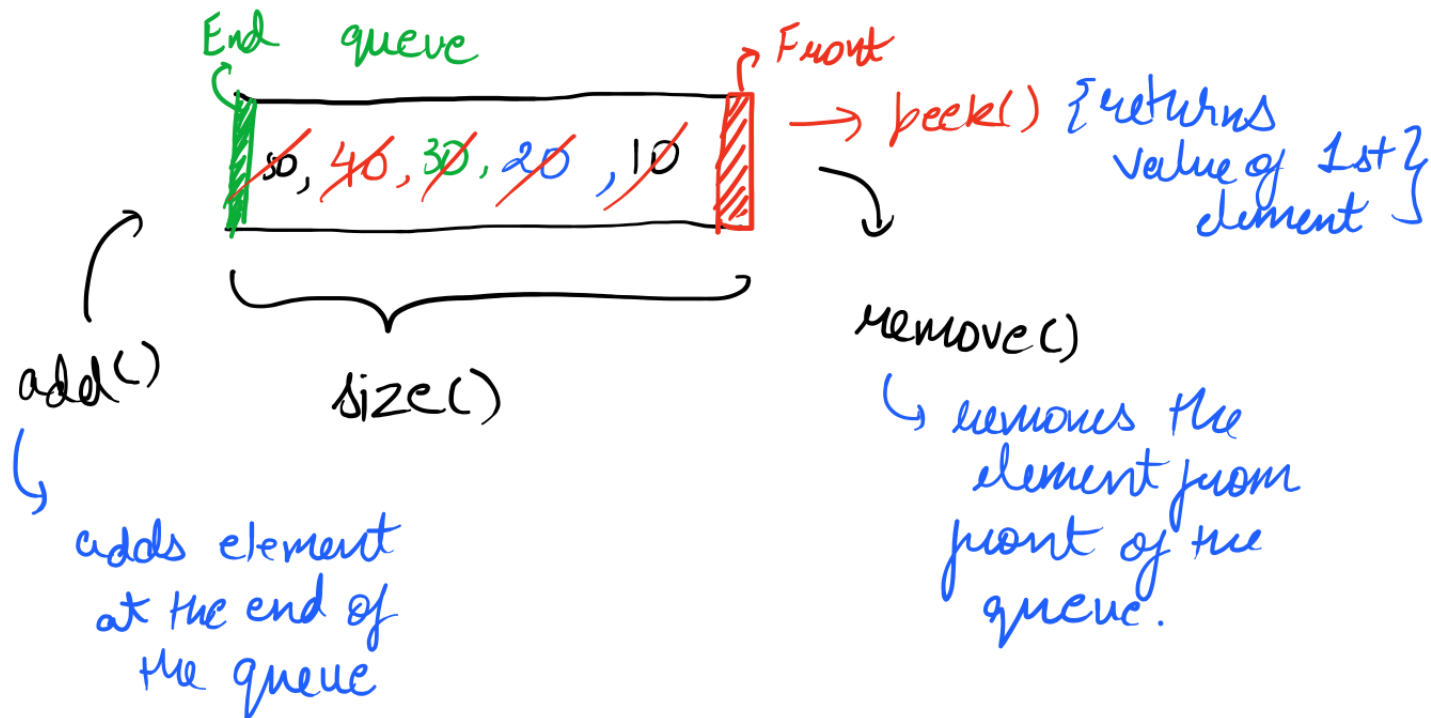 End queue
Front
50, 40, 30, 20, 10
→ peek() {returns
value of 1st}
element
add()
size()
remove()
removes the
element from
front of the
queue.
adds element
at the end of
the queue